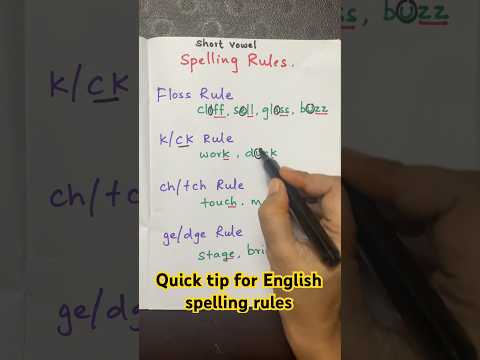 Short Vowel
Spelling Rules.
k/ck
Floss Rule
cliff, sell, gloss, buzz
k/ck Rule
work, duck
ch/tch Rule
touch.
ge/dge Rule
stage,
Quick tip for English
spelling rules
ge/dge
oss, buzz